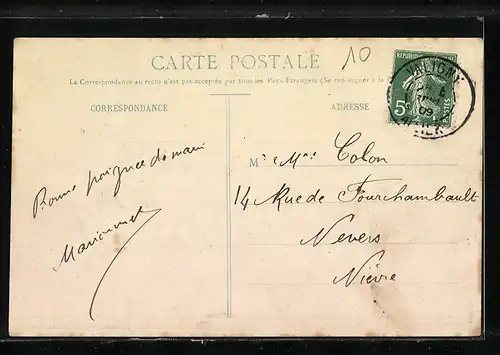 CARTE POSTALE
10
La Correspondance au recto n'est pas acceptée par tous les Pays Etrangers (Se renseigner à la
CORRESPONDANCE
ADRESSE
REPUBLIQUE
5c
POSTES
09
Bonne poignée de main
M. Mme Colon
14 Rue de Fourchambault
Nevers
Nièvre